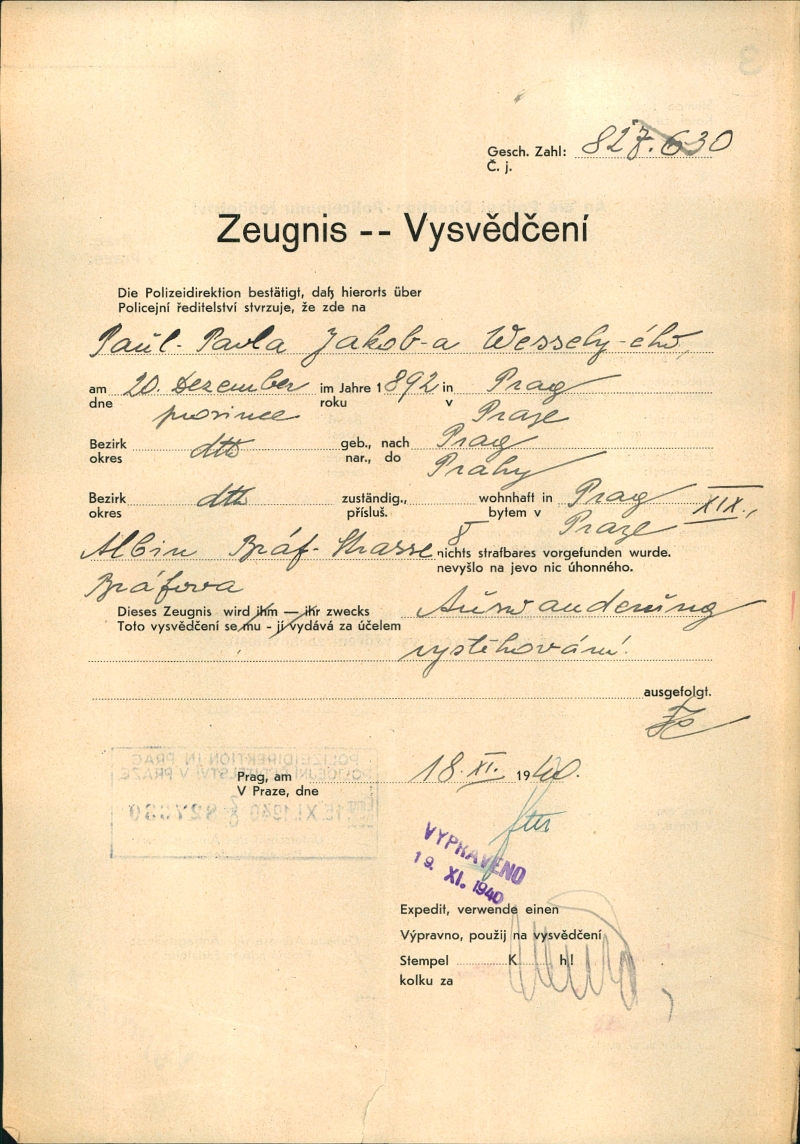 Gesch. Zahl: 827.630
Č. j.
Zeugnis -- Vysvědčení
Die Polizeidirektion bestätigt, daß hierorts über
Policejní ředitelství stvrzuje, že zde na
Paul- Pavla Jakob-a Wessely-ého,
am 20. Dezember im Jahre 1892 in Prag
dne prosince roku v Praze
Bezirk dtto geb., nach Prag
okres nar., do Prahy
Bezirk dtto zuständig., wohnhaft in Prag XIX.,
okres přísluš. bytem v Praze
Albin Bráf-Strasse 8 nichts strafbares vorgefunden wurde.
nevyšlo na jevo nic úhonného.
Bráfova
Dieses Zeugnis wird ihm — ihr zwecks Auswanderung
Toto vysvědčení se mu - jí vydává za účelem vystěhování.
ausgefolgt.
Prag, am 18. XI. 1940.
V Praze, dne
VYPRAVENO
19. XI. 1940
Expedit, verwende einen
Výpravno, použij na vysvědčení
Stempel K h!
kolku za
POLIZEIDIREKTION IN PRAG
POLICEJNÍ ŘEDITELSTVÍ V PRAZE
15. XI. 1940 827630